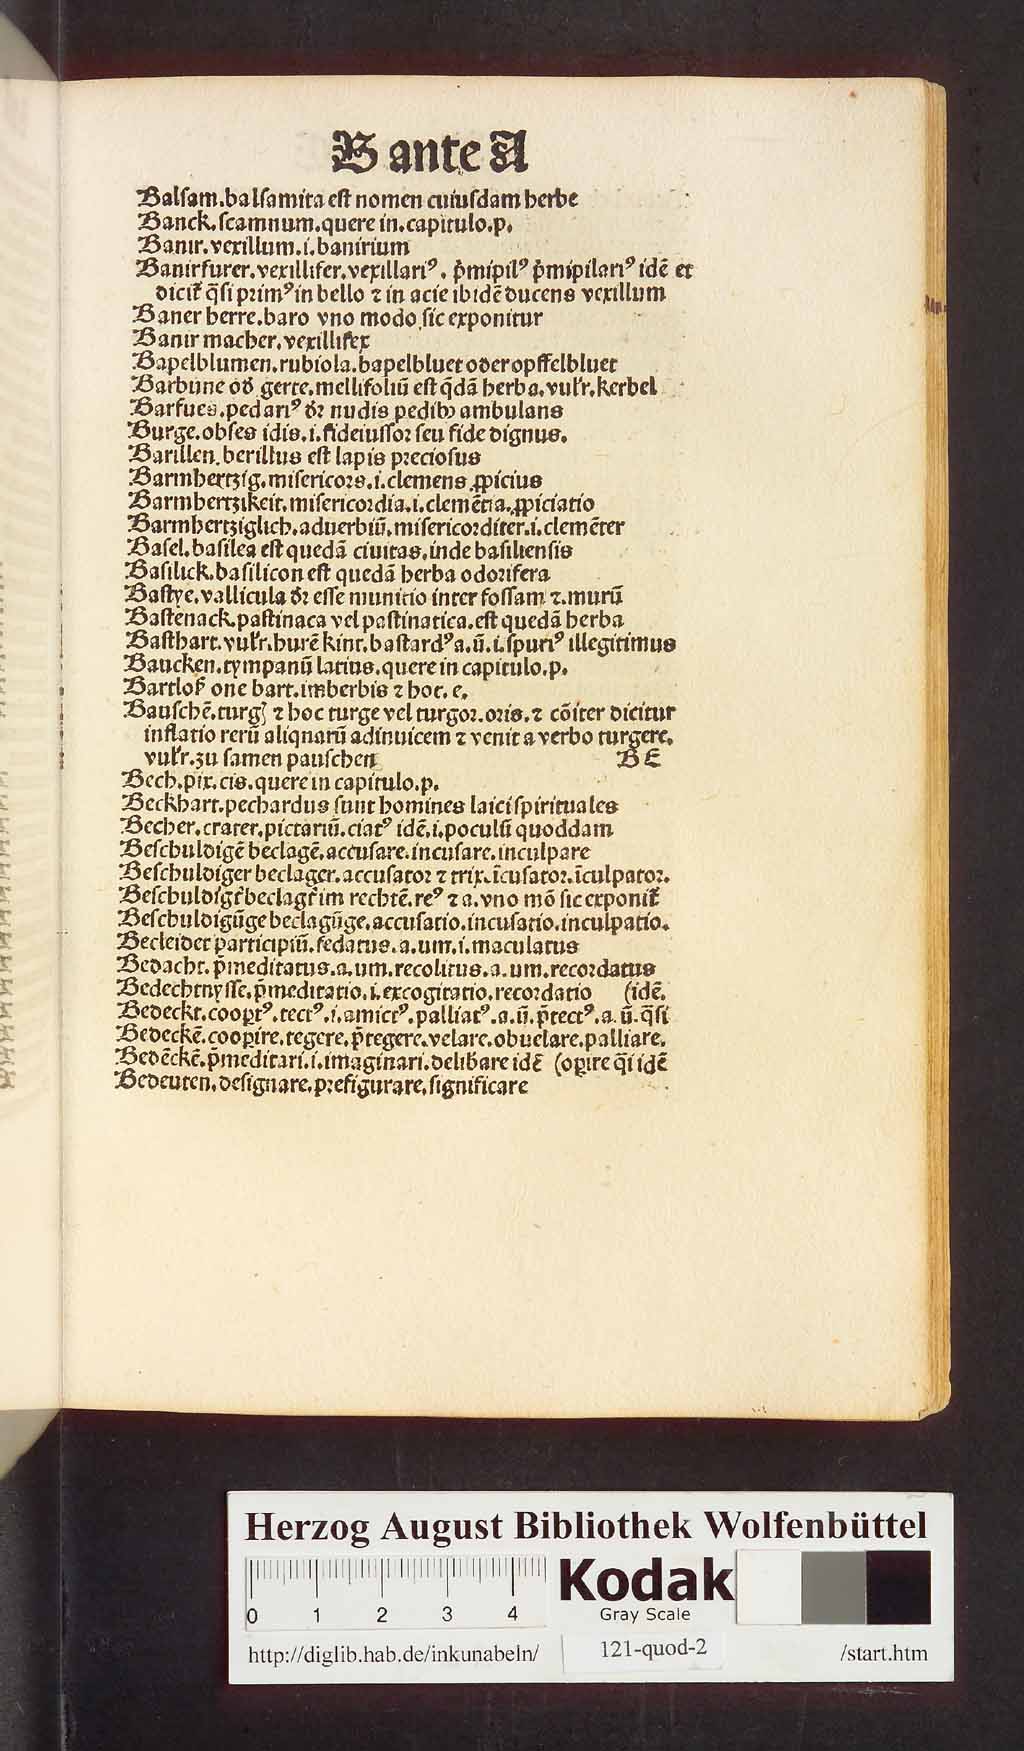 B ante A
Balsam.balsamita est nomen cuiusdam herbe
Banck.scamnum.quere in.capitulo.p.
Banir.vexillum.i.banirium
Banirfurer.vexillifer.vexillariꝰ. p̄mipilꝰ p̄mipilariꝰ idē et
dicit᷑ q̄si primꝰ in bello ⁊ in acie ibidē ducens vexillum
Baner herre.baro vno modo sic exponitur
Banir macher.vexillifex
Bapelblumen.rubiola.bapelbluet oder opffelbluet
Barbūne od᷑ gerte.mellifoliū est q̄dā herba.vulr̄.kerbel
Barfues.pedariꝰ dr̄ nudis pedibꝫ ambulans
Burge.obses idis.i.fideiussor seu fide dignus.
Barillen.berillus est lapis preciosus
Barmhertzig.misericors.i.clemens ꝓpicius
Barmhertzikeit.misericordia.i.clemētia.ꝓpiciatio
Barmhertziglich.aduerbiū.misericorditer.i.clemēter
Basel.basilea est quedā ciuitas.inde basiliensis
Basilick.basilicon est quedā herba odorifera
Bastye.vallicula dr̄ esse munitio inter fossam ⁊.murū
Bastenack.pastinaca vel pastinatica.est quedā herba
Basthart.vulr̄.hurē kint.bastardꝰ a.ū.i.spuriꝰ illegitimus
Baucken.tympanū latius.quere in capitulo.p.
Bartloß one bart.imberbis ⁊ hoc.e.
Bauschē.turgꝫ ⁊ hoc turge vel turgor.oris.⁊ cōiter dicitur
inflatio rerū aliqnarū adinuicem ⁊ venit a verbo turgere.
vulr̄.zu samen pauschen
BE
Bech.pix.cis.quere in capitulo.p.
Beckhart.pechardus sunt homines laici spirituales
Becher.crater.pictariū.ciatꝰ idē.i.poculū quoddam
Beschuldigē beclagē.accusare.incusare.inculpare
Beschuldiger beclager.accusator ⁊ trix.īcusator.īculpator.
Beschuldigt᷑ beclagt᷑ im rechtē.reꝰ ⁊ a.vno mō sic exponit᷑
Beschuldigūge beclagūge.accusatio.incusatio.inculpatio.
Becleidet participiū.fedatus.a.um.i.maculatus
Bedacht.p̄meditatus.a.um.recolitus.a.um.recordatus
Bedechtnysse.p̄meditatio.i.excogitatio.recordatio (idē.
Bedeckt.cooꝑtꝰ.tectꝰ.i.amictꝰ.palliatꝰ.a.ū.p̄tectꝰ.a.ū.q̄si
Bedeckē.cooꝑire.tegere.p̄tegere.velare.obuelare.palliare.
Bedēckē.p̄meditari.i.imaginari.deliƀare idē (oꝑire q̄i idē
Bedeuten.designare.prefigurare.significare
Herzog August Bibliothek Wolfenbüttel
0 1 2 3 4
Kodak
Gray Scale
http://diglib.hab.de/inkunabeln/ 121-quod-2 /start.htm